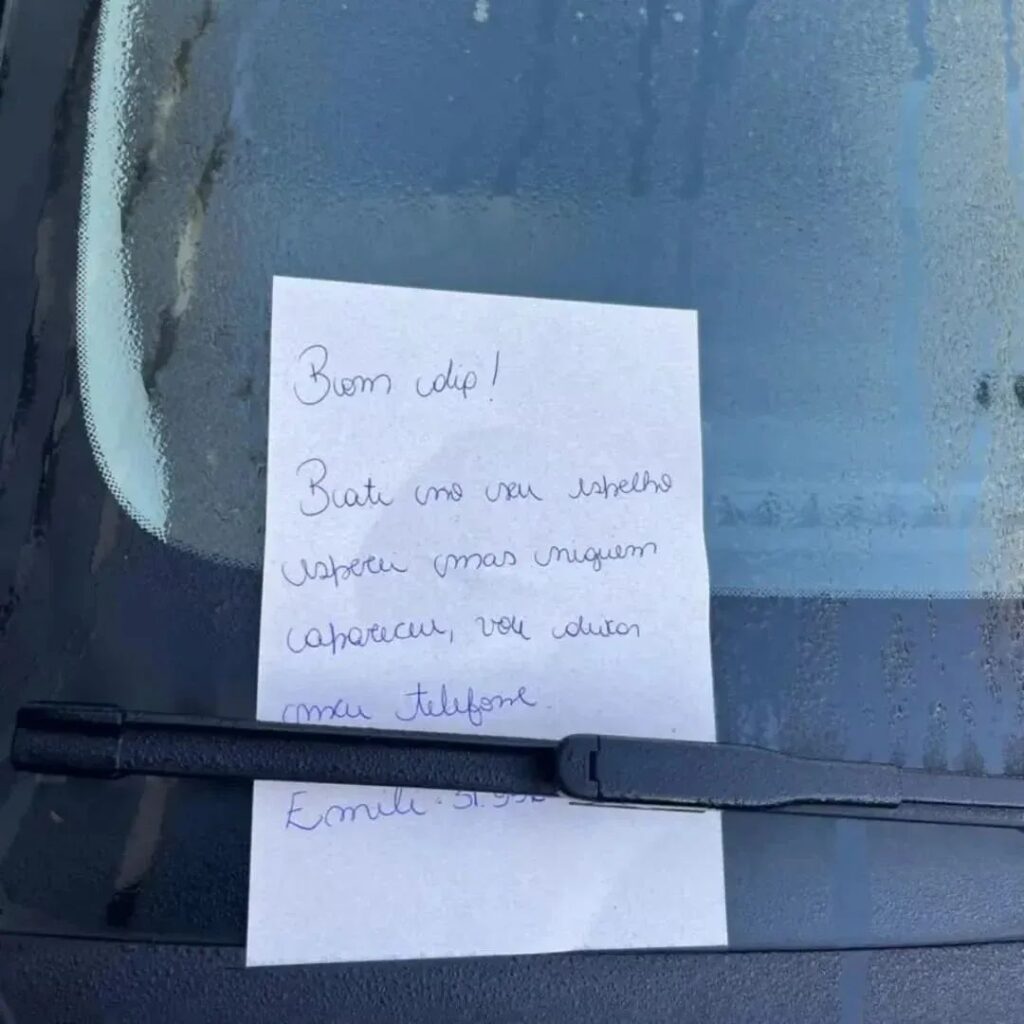 Bom dia!
Bati no seu espelho
esperei mas niguem
apareceu, vou deixar
meu telefone.
Emili. 51.99